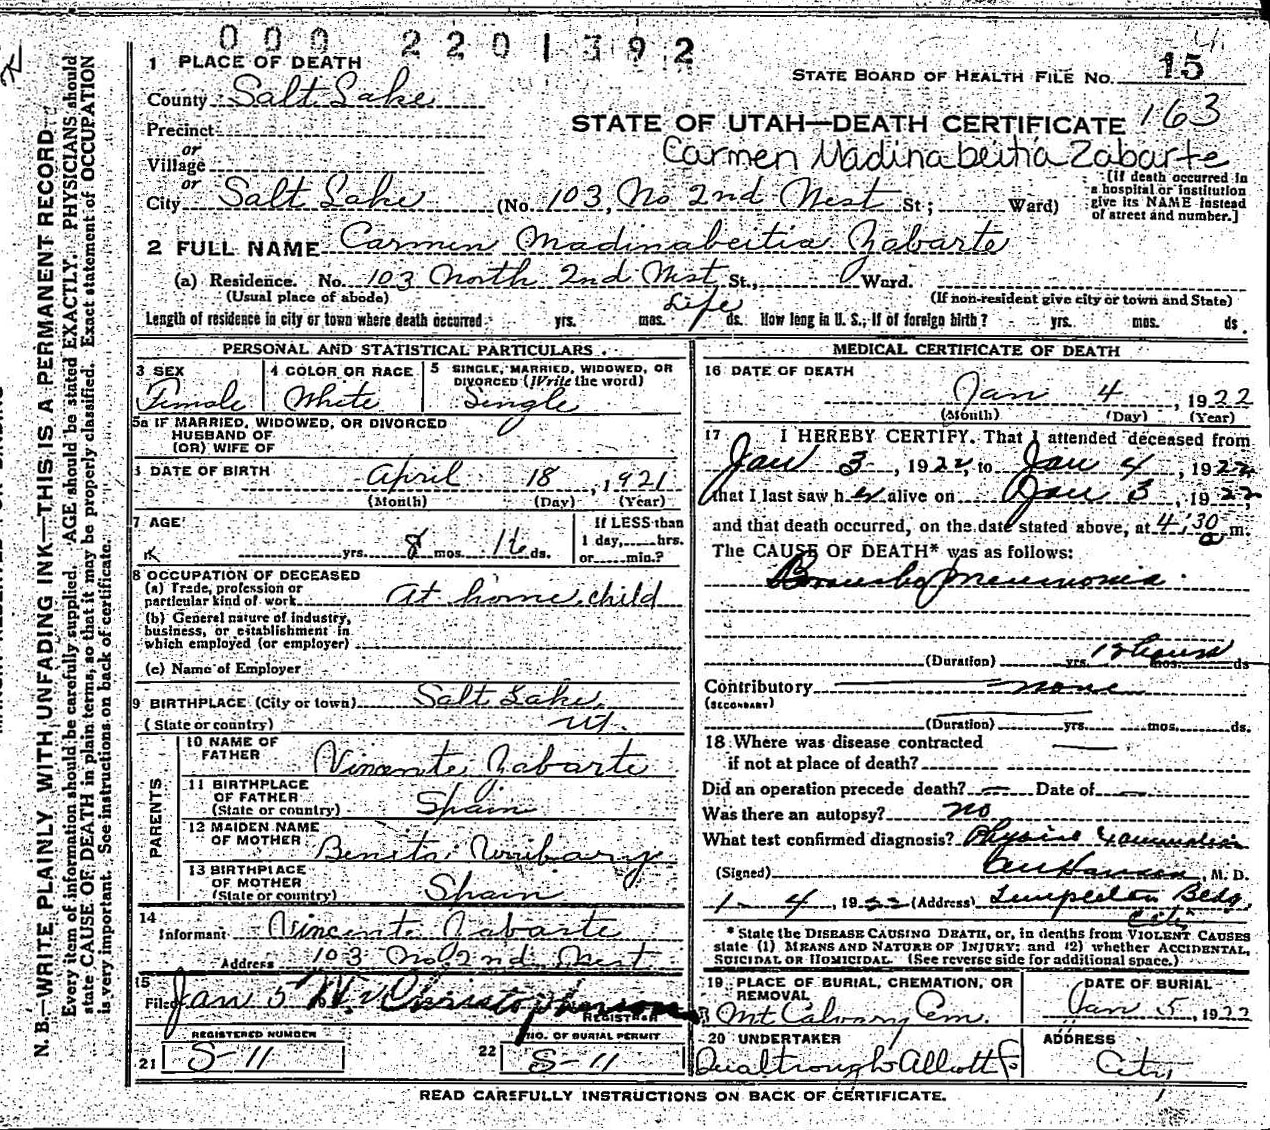 0 0 0 2 2 0 1 3 9 2
1 PLACE OF DEATH
STATE BOARD OF HEALTH FILE NO. 15
4
County Salt Lake
163
STATE OF UTAH—DEATH CERTIFICATE
Precinct
or
Village
Carmen Madinabeitia Zabarte
or
City Salt Lake (No. 103, No 2nd West St; Ward)
[If death occurred in
a hospital or institution
give its NAME instead
of street and number.]
2 FULL NAME Carmen Madinabeitia Zabarte
(a) Residence. No. 103 North 2nd West St., Ward.
(Usual place of abode)
(If non-resident give city or town and State)
Life
Length of residence in city or town where death occurred yrs. mos. ds. How long in U. S., if of foreign birth? yrs. mos. ds.
PERSONAL AND STATISTICAL PARTICULARS
3 SEX
Female
4 COLOR OR RACE
White
5 SINGLE, MARRIED, WIDOWED, OR
DIVORCED (Write the word)
Single
5a IF MARRIED, WIDOWED, OR DIVORCED
HUSBAND OF
(OR) WIFE OF
6 DATE OF BIRTH April 18, 1921
(Month) (Day) (Year)
7 AGE
yrs. 8 mos. 16 ds.
If LESS than
1 day, hrs.
or min.?
8 OCCUPATION OF DECEASED
(a) Trade, profession or
particular kind of work At home child
(b) General nature of industry,
business, or establishment in
which employed (or employer)
(c) Name of Employer
9 BIRTHPLACE (City or town) Salt Lake,
(State or country) Ut.
PARENTS
10 NAME OF
FATHER Vincente Zabarte
11 BIRTHPLACE
OF FATHER
(State or country) Spain
12 MAIDEN NAME
OF MOTHER Benita
13 BIRTHPLACE
OF MOTHER
(State or country) Spain
14
Informant Vincente Zabarte
Address 103 No. 2nd West
15
Filed Jan 5 W. Christopherson
REGISTRAR
REGISTERED NUMBER
21 S-11
NO. OF BURIAL PERMIT
22 S-11
MEDICAL CERTIFICATE OF DEATH
16 DATE OF DEATH
Jan 4, 1922
(Month) (Day) (Year)
17 I HEREBY CERTIFY. That I attended deceased from
Jan 3, 1922 to Jan 4, 1922
that I last saw her alive on Jan 3, 1922,
and that death occurred, on the date stated above, at 4:30 a m.
The CAUSE OF DEATH* was as follows:
Broncho Pneumonia
(Duration) yrs. 12 hours mos. ds
Contributory none
(SECONDARY)
(Duration) yrs. mos. ds.
18 Where was disease contracted
if not at place of death?
Did an operation precede death? — Date of —
Was there an autopsy? no
What test confirmed diagnosis?
(Signed) M. D.
1- 4, 1922 (Address) Templeton Bldg,
City
* State the DISEASE CAUSING DEATH, or, in deaths from VIOLENT CAUSES
state (1) MEANS AND NATURE OF INJURY; and (2) whether ACCIDENTAL,
SUICIDAL OR HOMICIDAL. (See reverse side for additional space.)
19 PLACE OF BURIAL, CREMATION, OR
REMOVAL
Mt Calvary Cem.
DATE OF BURIAL
Jan 5, 1922
20 UNDERTAKER
ADDRESS
City
READ CAREFULLY INSTRUCTIONS ON BACK OF CERTIFICATE.
N. B.—WRITE PLAINLY, WITH UNFADING INK—THIS IS A PERMANENT RECORD
Every item of information should be carefully supplied. AGE should be stated EXACTLY. PHYSICIANS should
state CAUSE OF DEATH in plain terms, so that it may be properly classified. Exact statement of OCCUPATION
is very important. See instructions on back of certificate.